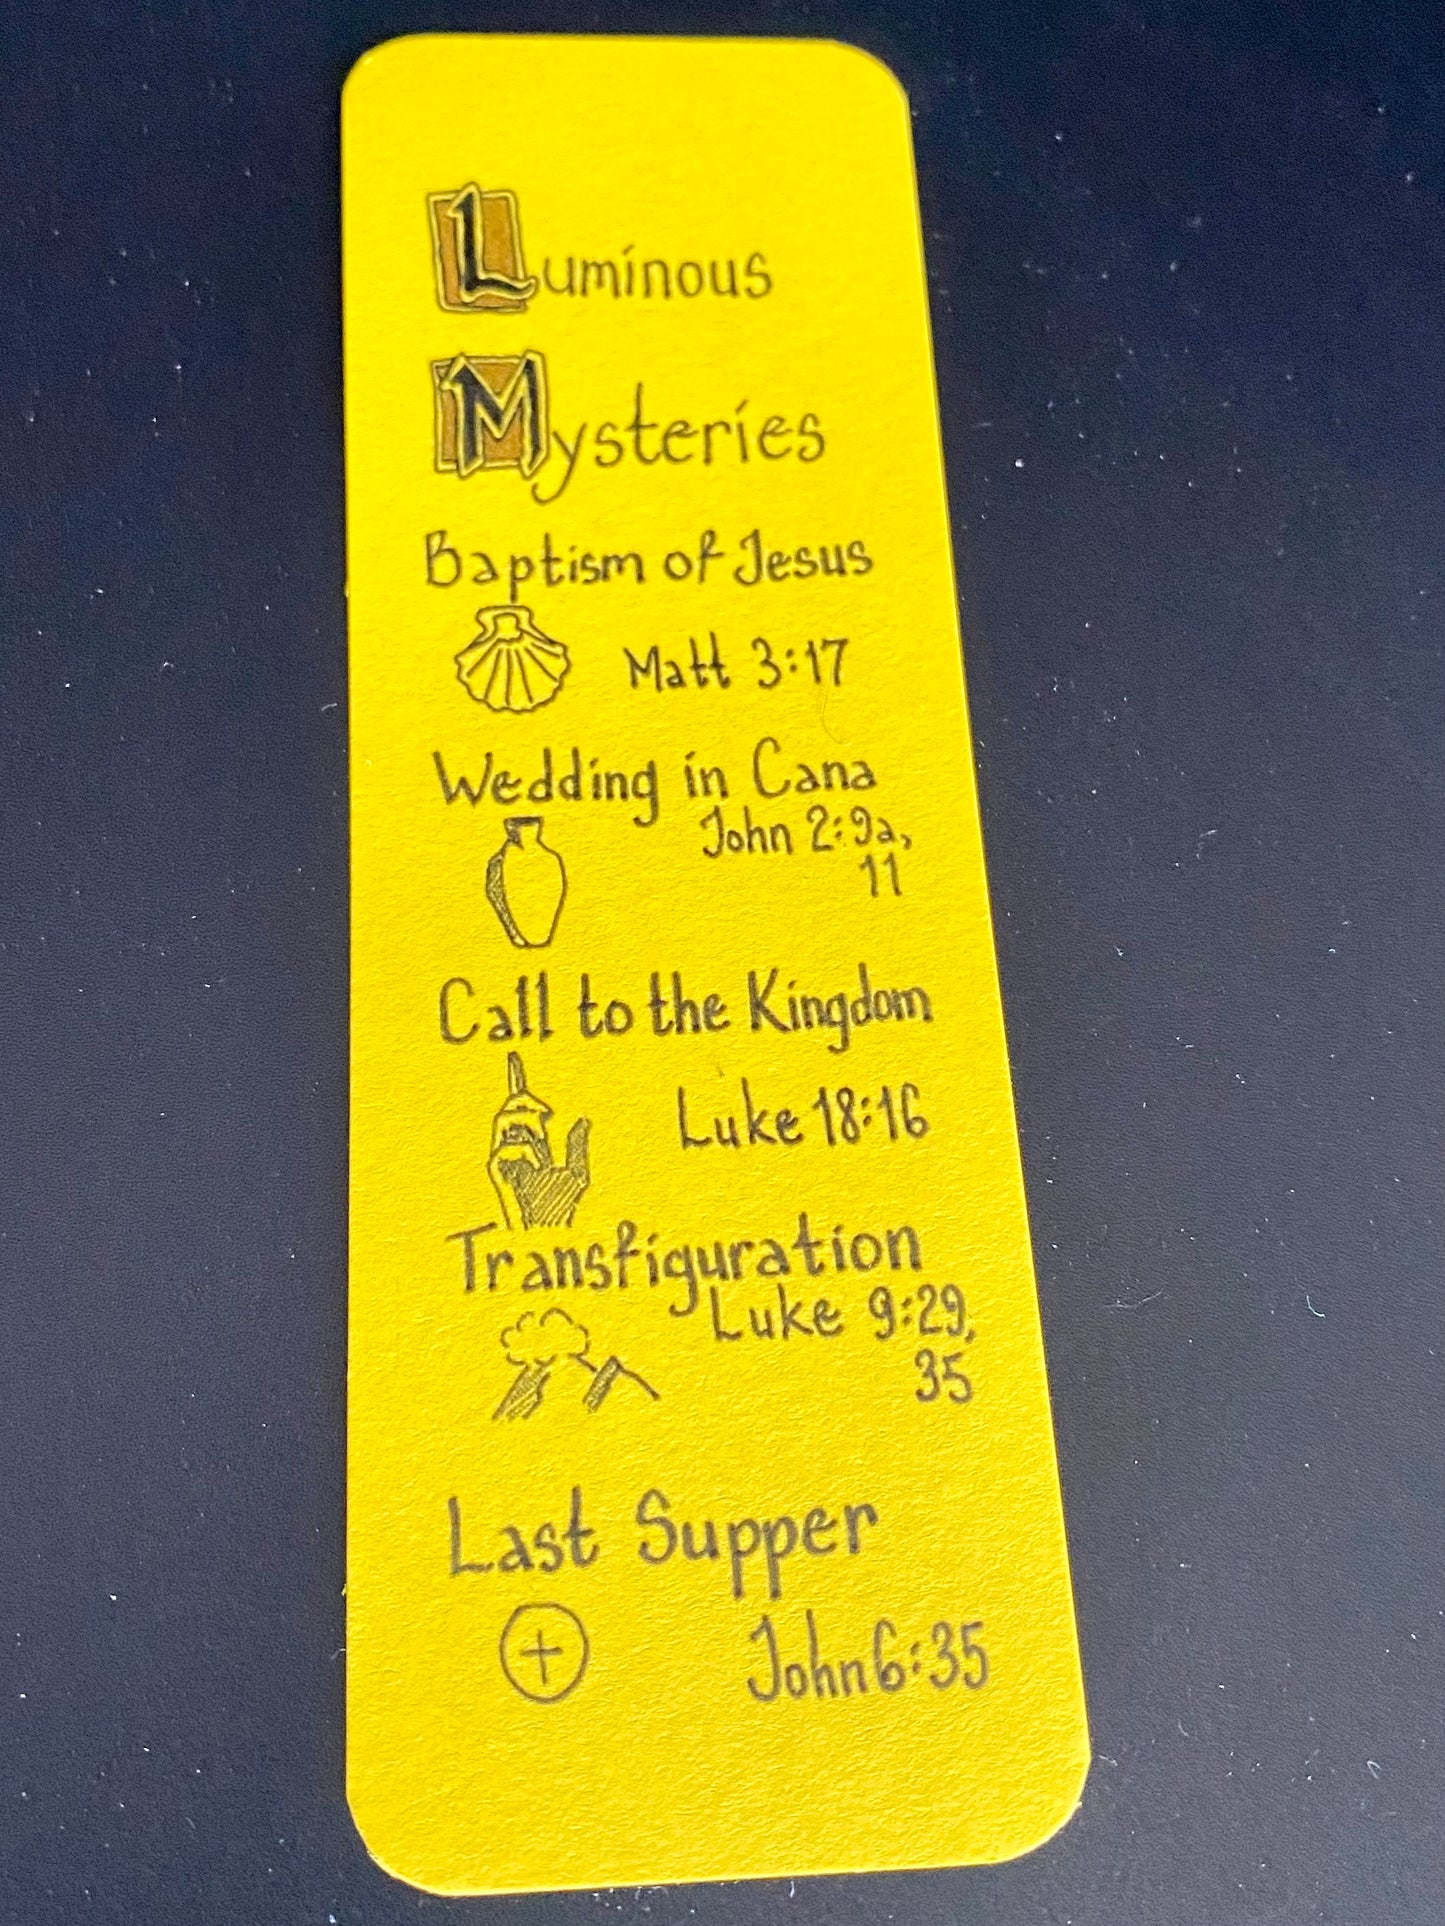 Luminous
Mysteries
Baptism of Jesus
Matt 3:17
Wedding in Cana
John 2:9a,
11
Call to the Kingdom
Luke 18:16
Transfiguration
Luke 9:29,
35
Last Supper
John 6:35